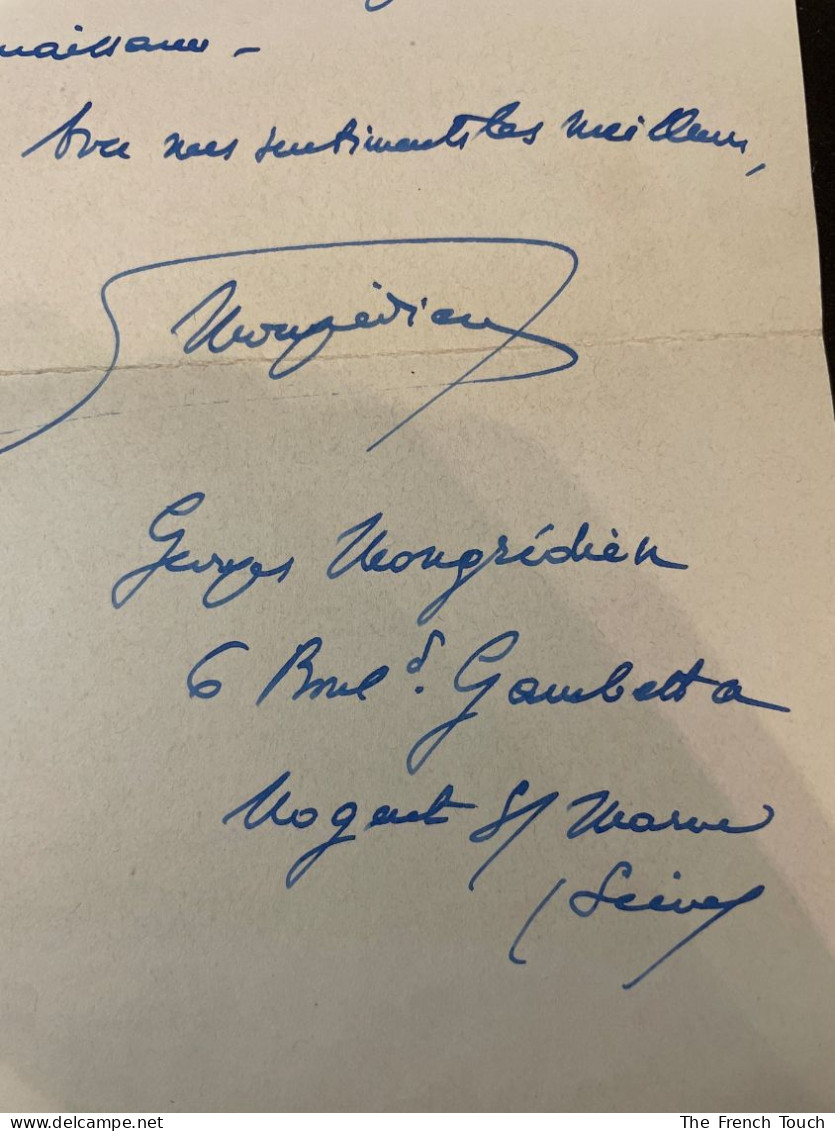 Avec mes sentiments les meilleurs,
Mongrédien
Georges Mongrédien
6 Boul d. Gambetta
Nogent S/ Marne
(Seine)
delcampe.net
The French Touch